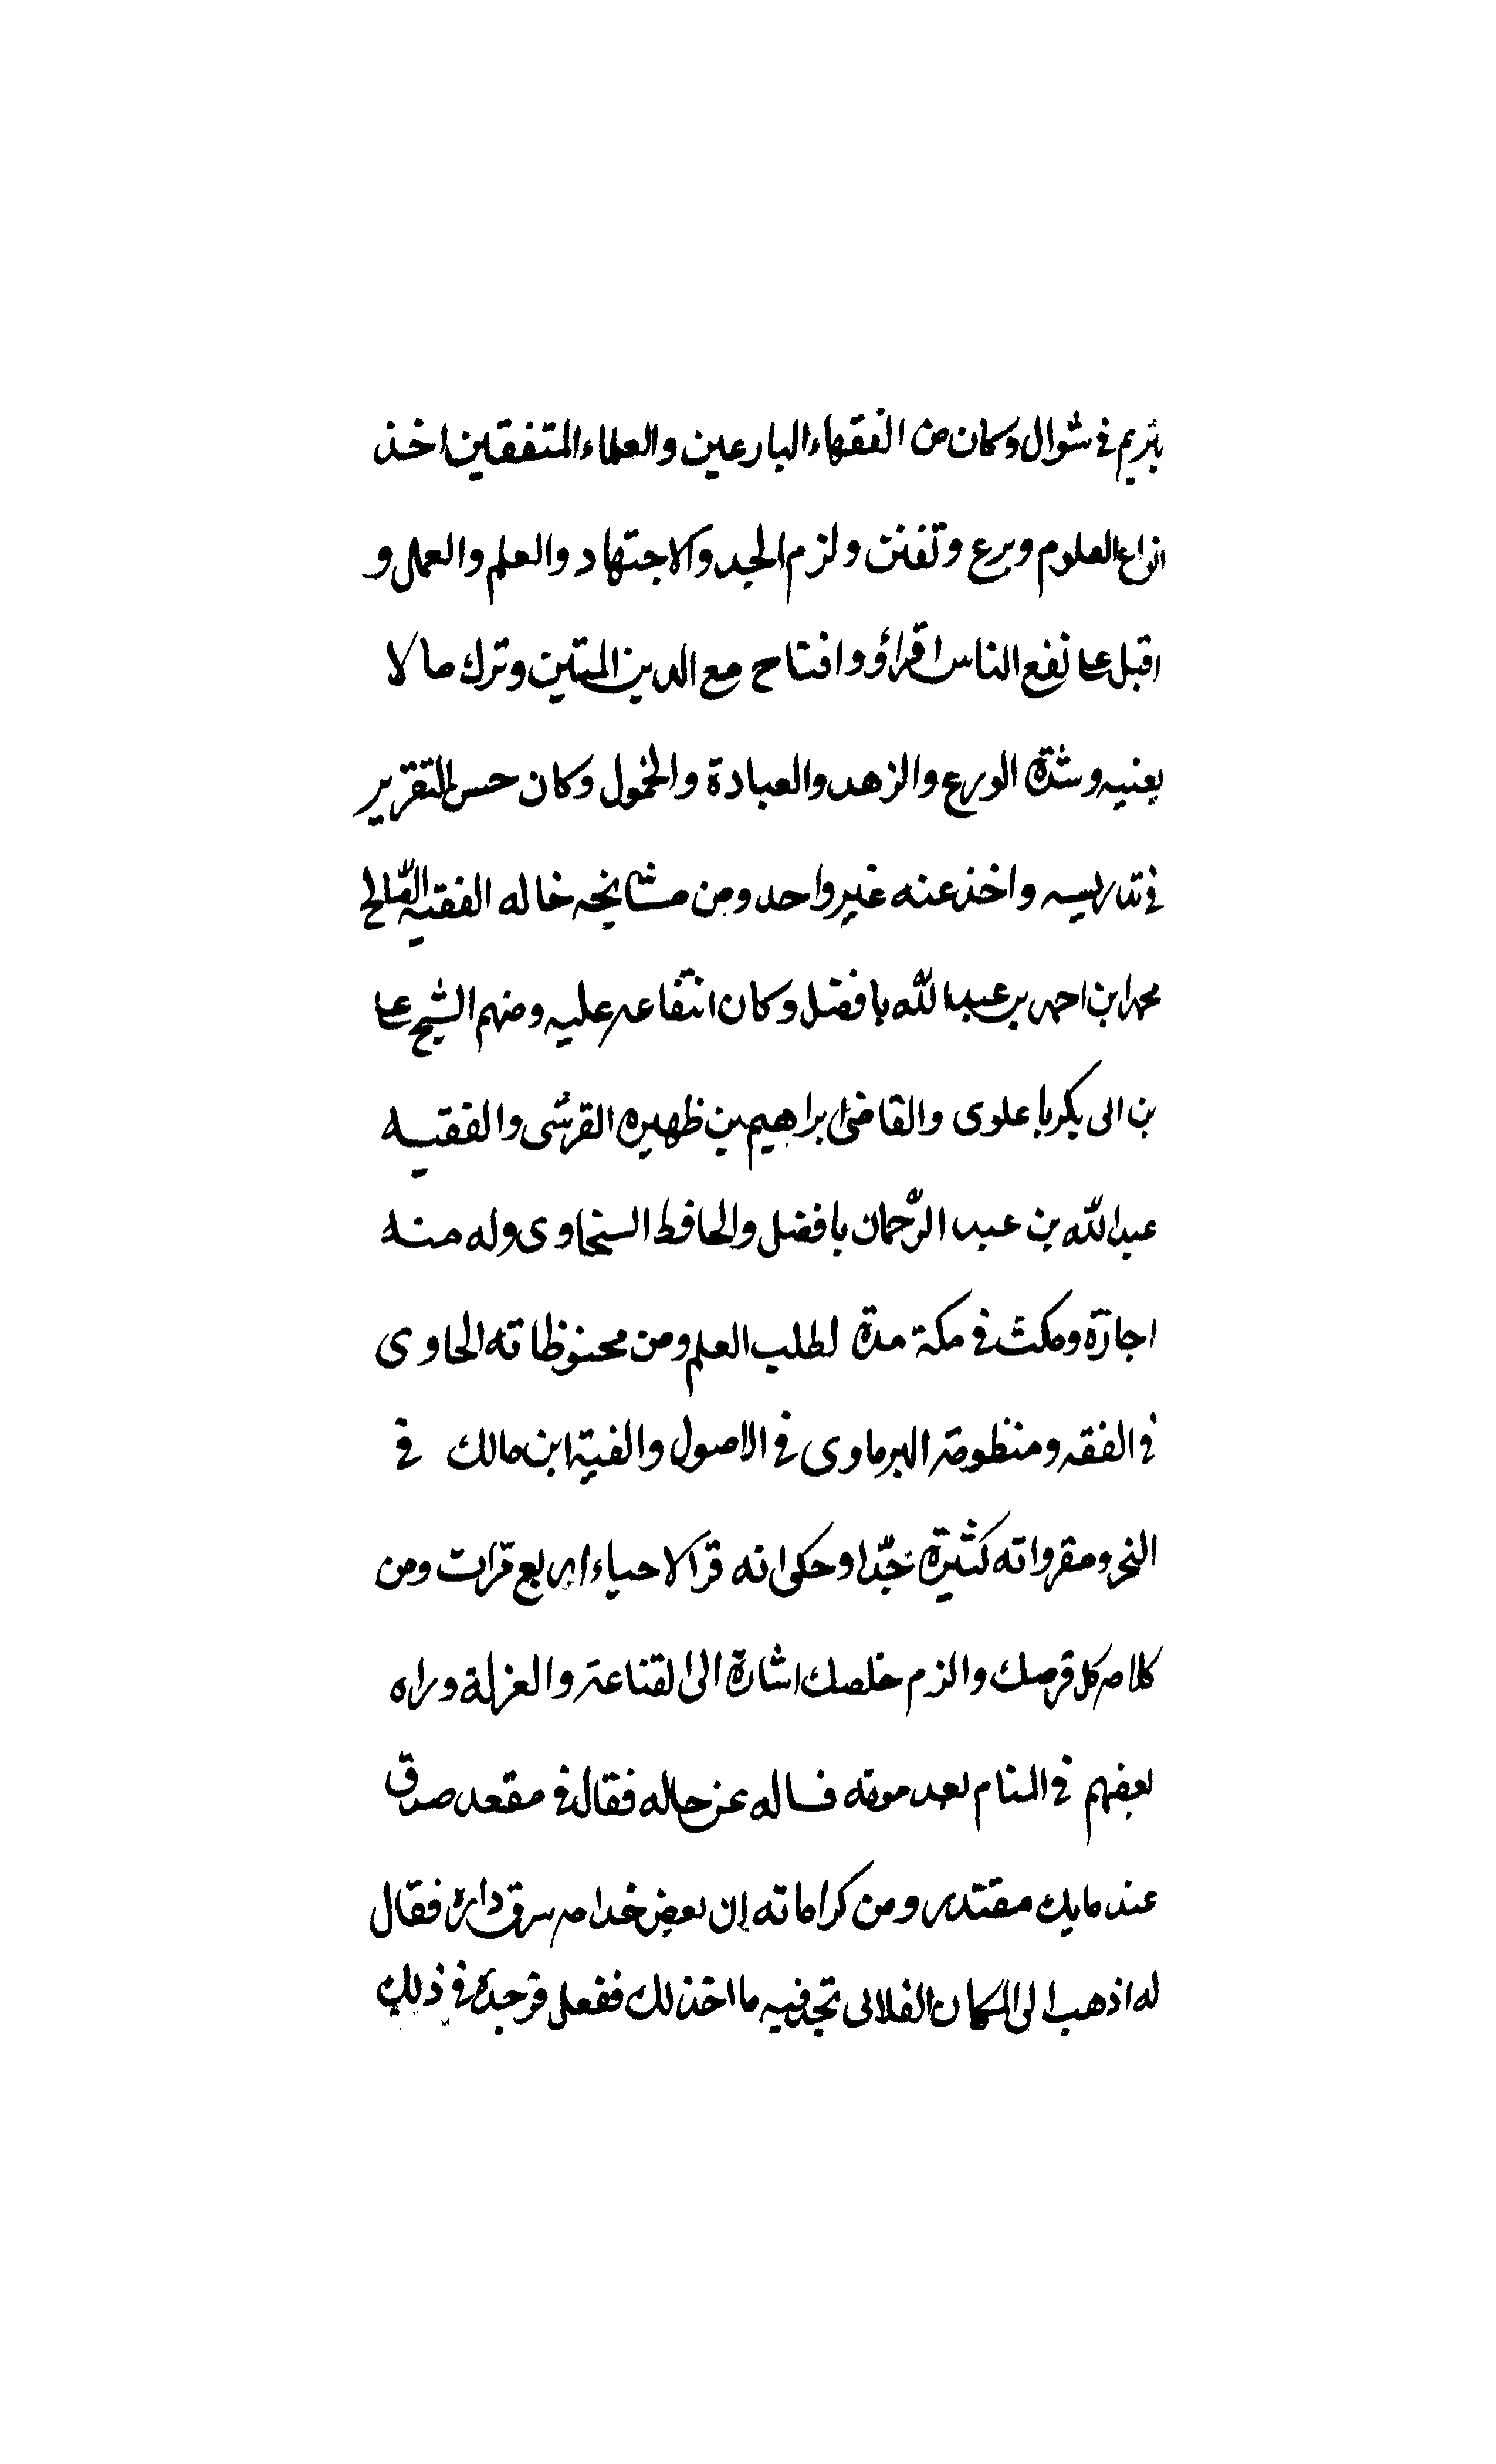 بتريم في شوال وكان من الفقهاء البارعين والعلماء المتفقين اخذ
انواع العلوم وبرع وتفنن ولزم الجد والاجتهاد والعلم والعمل و
اقبل على نفع الناس اقراؤ وافتاح مع الدين المتين وترك ما لا
يعنيه وشدة الورع والزهد والعبادة والخمول وكان حسن التقرير
في تدريسه واخذ عنه غير واحد ومن مشايخه خاله الفقيه الصالح
محمد ابن احمد بن عبد الله بافضل وكان انتفاعه عليه ومنهم الشيخ على
بن ابى بكر باعلوى والقاضى ابراهيم بن ظهيره القرشى والفقيه
عبد الله بن عبد الرحمان بافضل والحافظ السخاوى وله منه
اجازة ومكث في مكة مدة لطلب العلم ومن محفوظاته الحاوى
في الفقه ومنظومة البرماوى في الاصول والفية ابن مالك في
النحو ومقرواته كثيرة جدا وحكى انه قرا الاحياء اربع مرات ومن
كلامه كل قرصك والزم خلصك اشارة الى القناعة والعزلة وراه
بعضهم في المنام بعد موته فساله عن حاله فقال في مقعد صدق
عند مليك مقتدر ومن كراماته ان بعض خدامه سرق داره فقال
له اذهب الى المكان الفلانى تجد فيه ما اخذ لك ففعل فوجده في ذلك